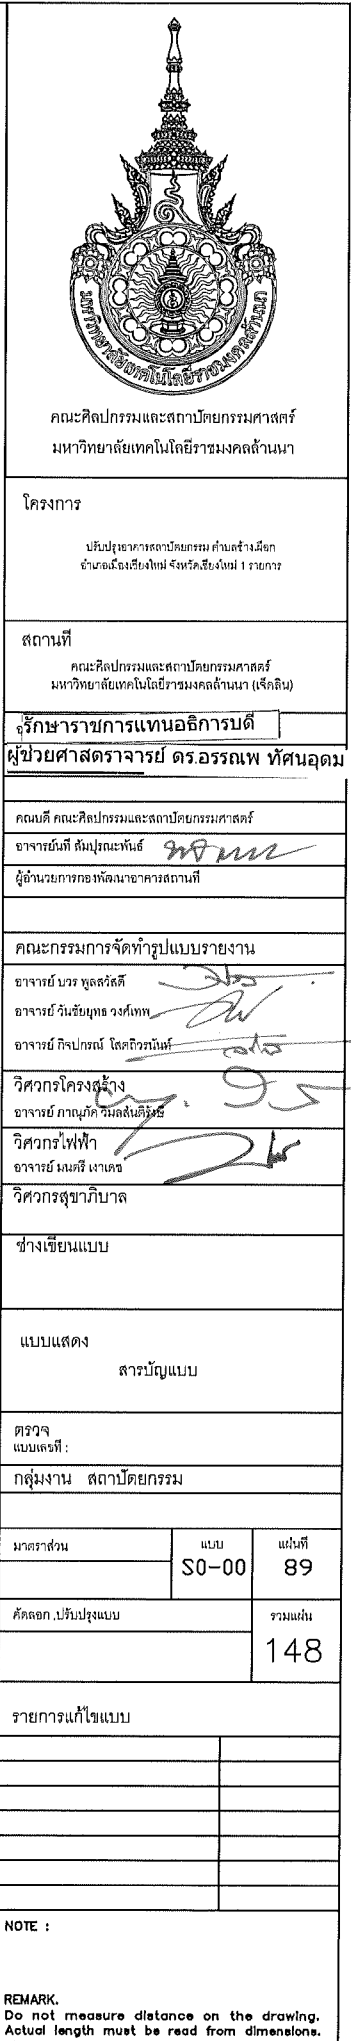 มหาวิทยาลัยเทคโนโลยีราชมงคลล้านนา
คณะศิลปกรรมและสถาปัตยกรรมศาสตร์
มหาวิทยาลัยเทคโนโลยีราชมงคลล้านนา
โครงการ
ปรับปรุงอาคารสถาปัตยกรรม ตำบลช้างเผือก
อำเภอเมืองเชียงใหม่ จังหวัดเชียงใหม่ 1 รายการ
สถานที่
คณะศิลปกรรมและสถาปัตยกรรมศาสตร์
มหาวิทยาลัยเทคโนโลยีราชมงคลล้านนา (เจ็ดลิน)
รักษาราชการแทนอธิการบดี
ผู้ช่วยศาสตราจารย์ ดร.อรรณพ ทัศนอุดม
คณบดี คณะศิลปกรรมและสถาปัตยกรรมศาสตร์
อาจารย์นที สัมปุรณะพันธ์
ผู้อำนวยการกองพัฒนาอาคารสถานที่
คณะกรรมการจัดทำรูปแบบรายงาน
อาจารย์ บวร พูลสวัสดิ์
อาจารย์ วันชัยยุทธ วงศ์เทพ
อาจารย์ กิจปกรณ์ โสตถิวรนันท์
วิศวกรโครงสร้าง
อาจารย์ ภาณุภัค วิมลสันติรังษี
วิศวกรไฟฟ้า
อาจารย์ มนตรี เงาเดช
วิศวกรสุขาภิบาล
ช่างเขียนแบบ
แบบแสดง
สารบัญแบบ
ตรวจ
แบบเลขที่ :
กลุ่มงาน สถาปัตยกรรม
มาตราส่วน แบบ แผ่นที่
S0-00 89
คัดลอก ,ปรับปรุงแบบ รวมแผ่น
148
รายการแก้ไขแบบ
NOTE :
REMARK.
Do not measure distance on the drawing.
Actual length must be read from dimensions.